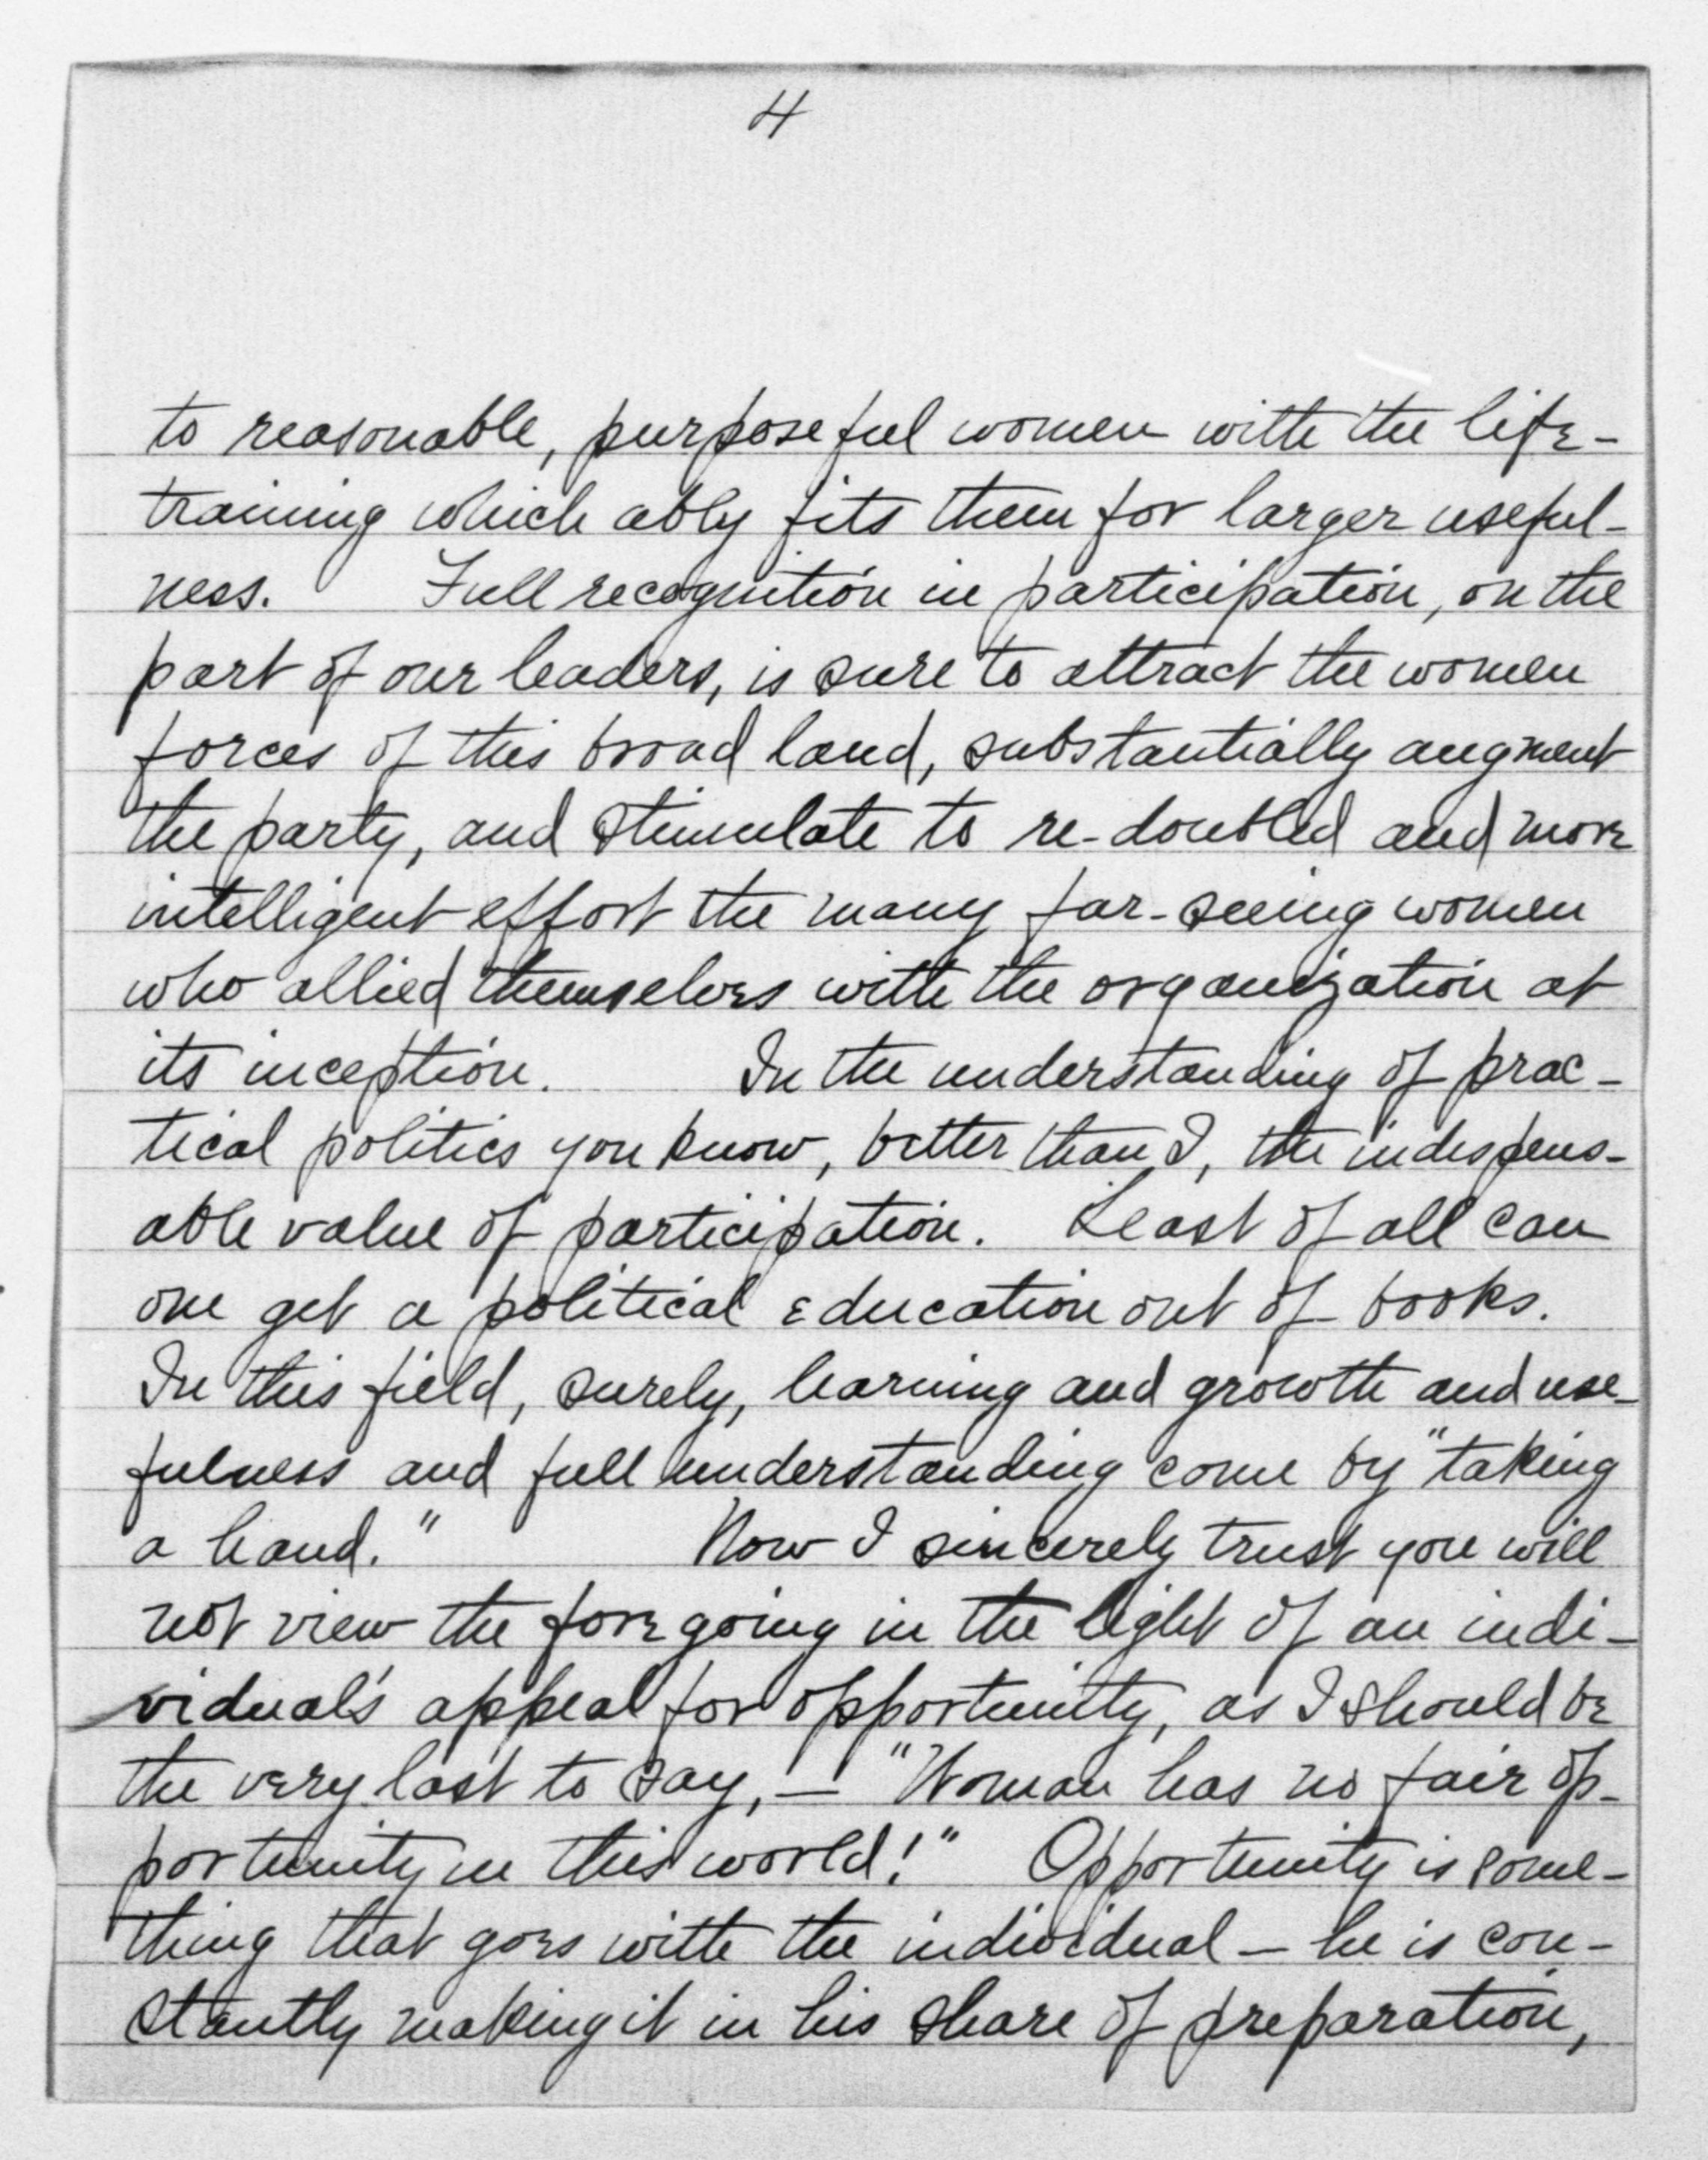 4
to reasonable, purposeful women with the life-
training which ably fits them for larger useful-
ness. Full recognition in participation, on the
part of our leaders, is sure to attract the women
forces of this broad land, substantially augment
the party, and stimulate to re-doubled and more
intelligent effort the many far-seeing women
who allied themselves with the organization at
its inception. In the understanding of prac-
tical politics you know, better than I, the indispens-
able value of participation. Least of all can
one get a political education out of books.
In this field, surely, learning and growth and use-
fulness and full understanding come by "taking
a hand." Now I sincerely trust you will
not view the foregoing in the light of an indi-
vidual's appeal for opportunity, as I should be
the very last to say, — "Woman has no fair op-
portunity in this world!" Opportunity is some-
thing that goes with the individual — he is con-
stantly making it in his share of preparation,